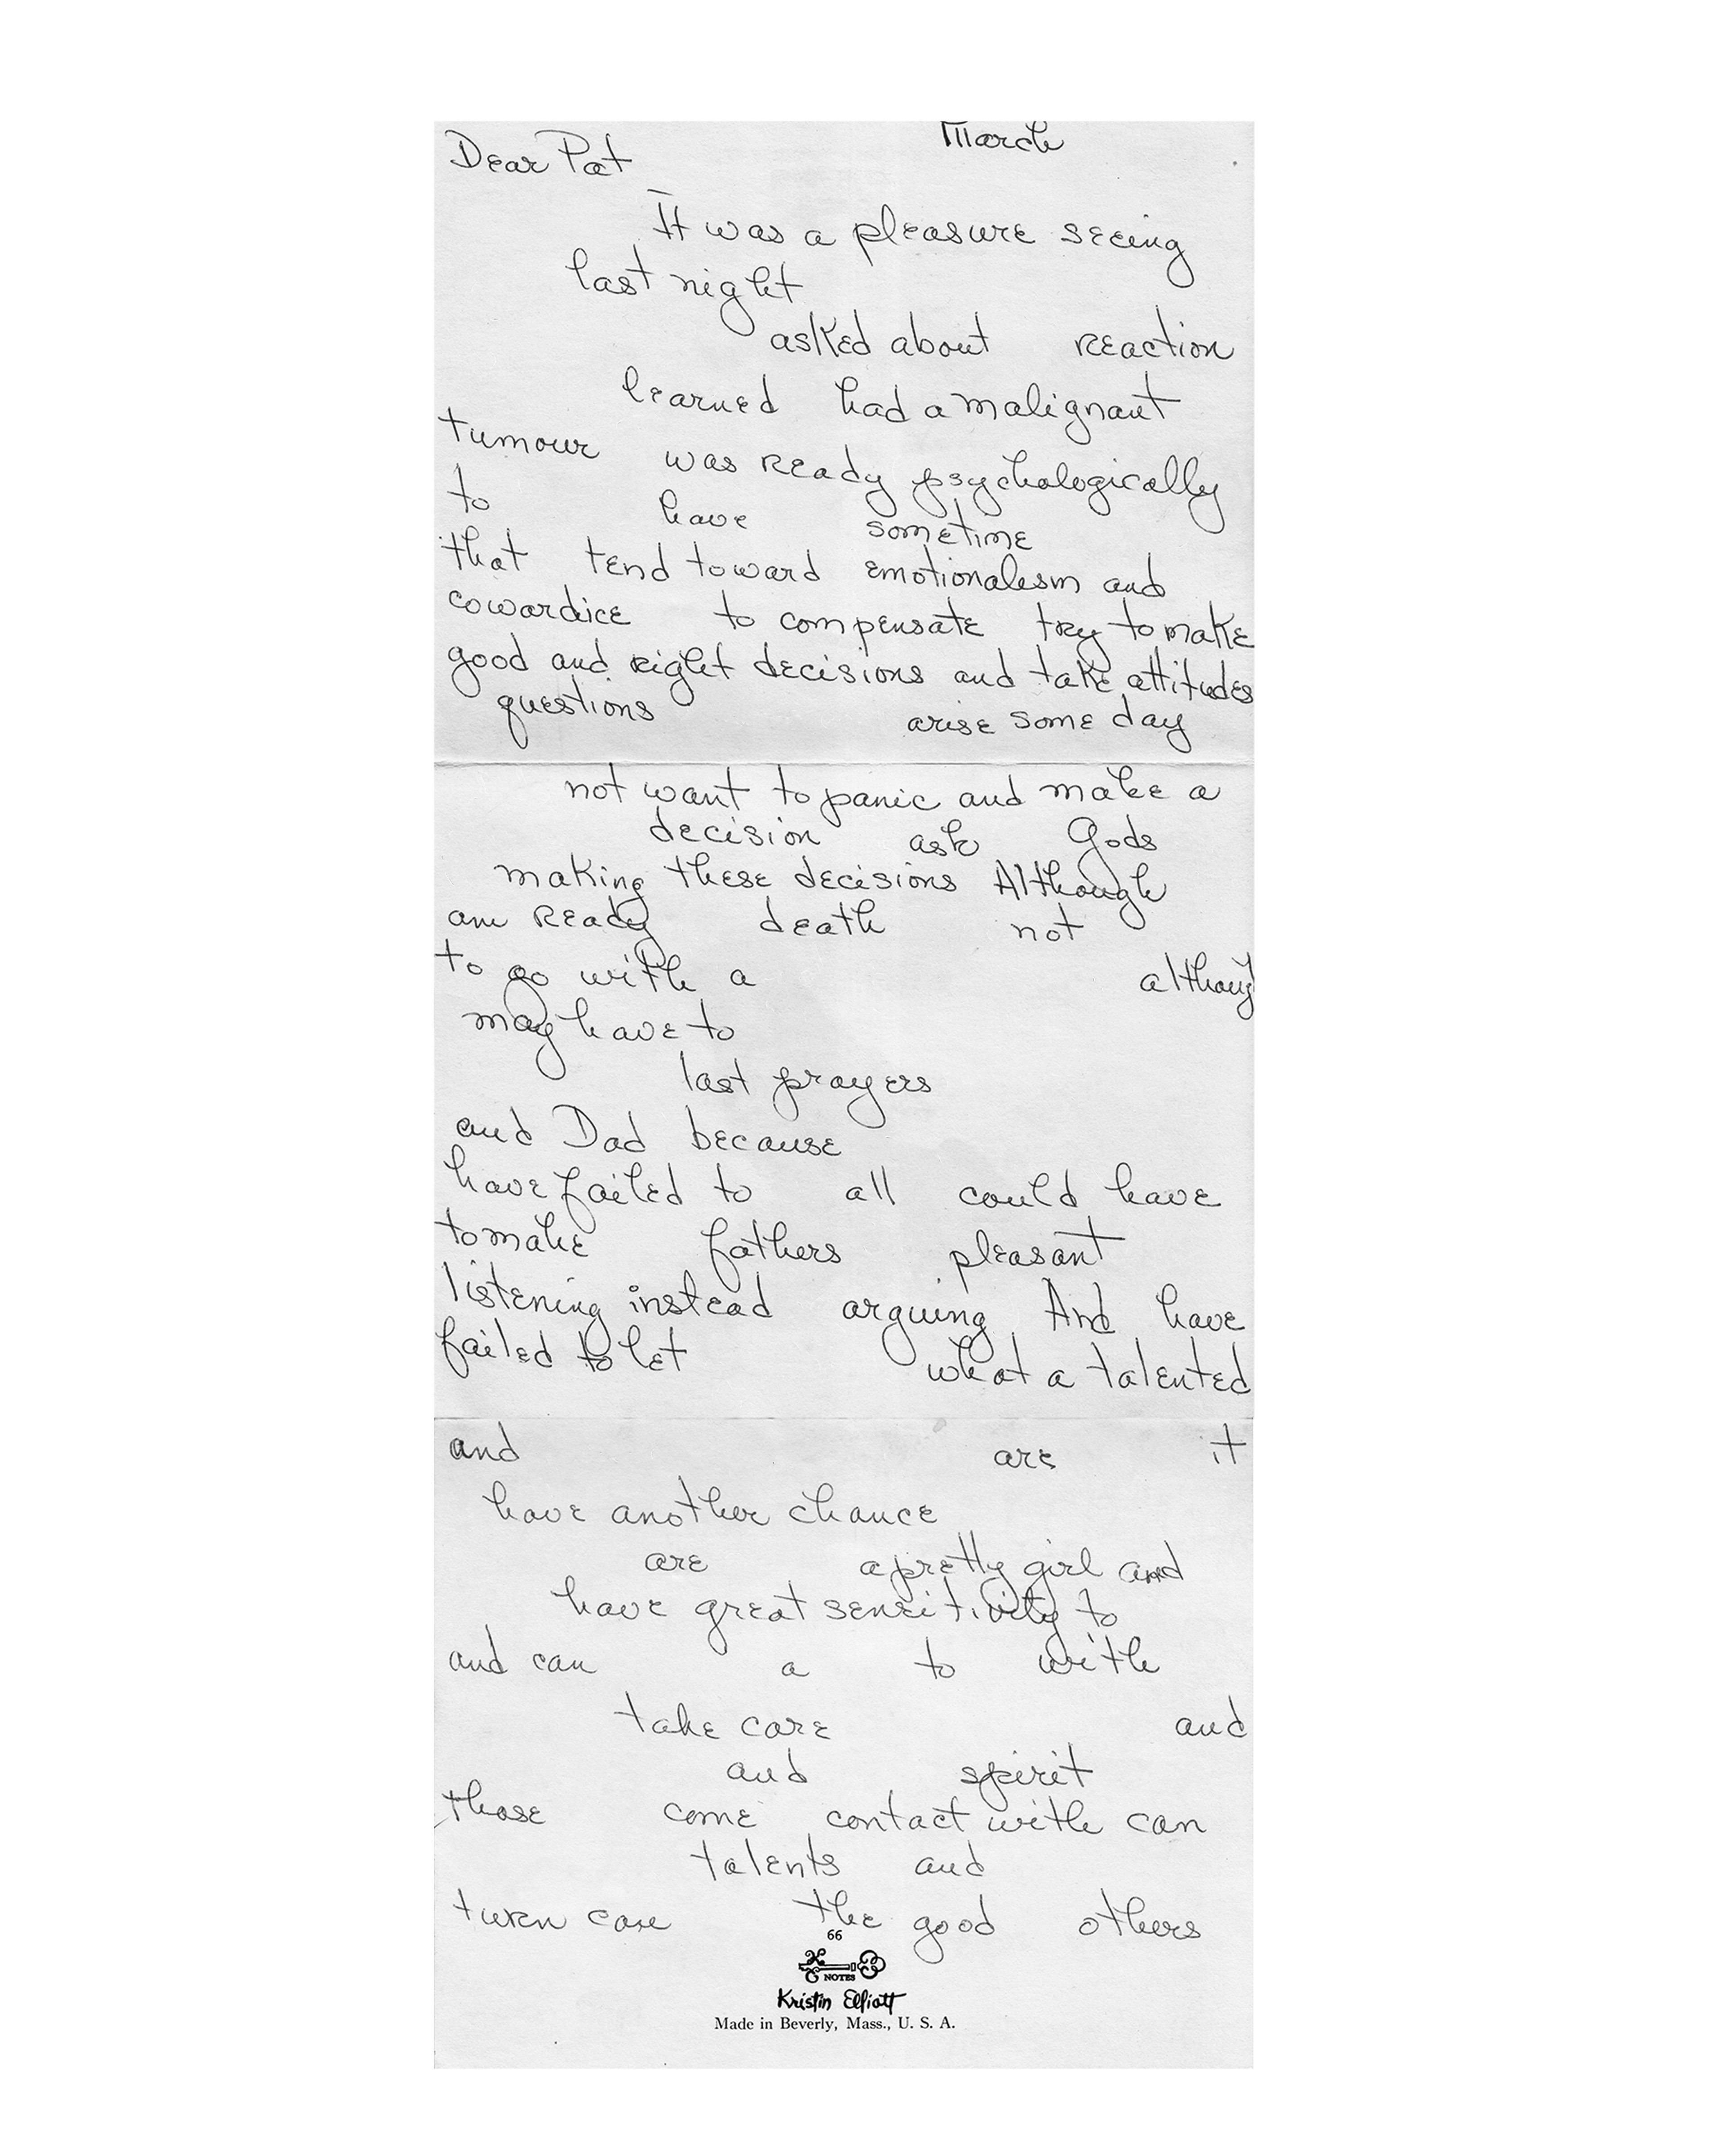 March
Dear Pat
It was a pleasure seeing
last night
asked about reaction
learned had a malignant
tumour was ready psychologically
to have sometime
that tend toward emotionalism and
cowardice to compensate try to make
good and right decisions and take attitudes
questions arise some day
not want to panic and make a
decision ask Gods
making these decisions Although
am ready death not
to go with a althoug
may have to
last prayers
and Dad because
have failed to all could have
to make fathers pleasant
listening instead arguing And have
failed to let what a talented
and are it
have another chance
are a pretty girl and
have great sensitivity to
and can a to with
take care and
and spirit
those come contact with can
talents and
turn can the good others
66
NOTES
Kristin Elliott
Made in Beverly, Mass., U. S. A.